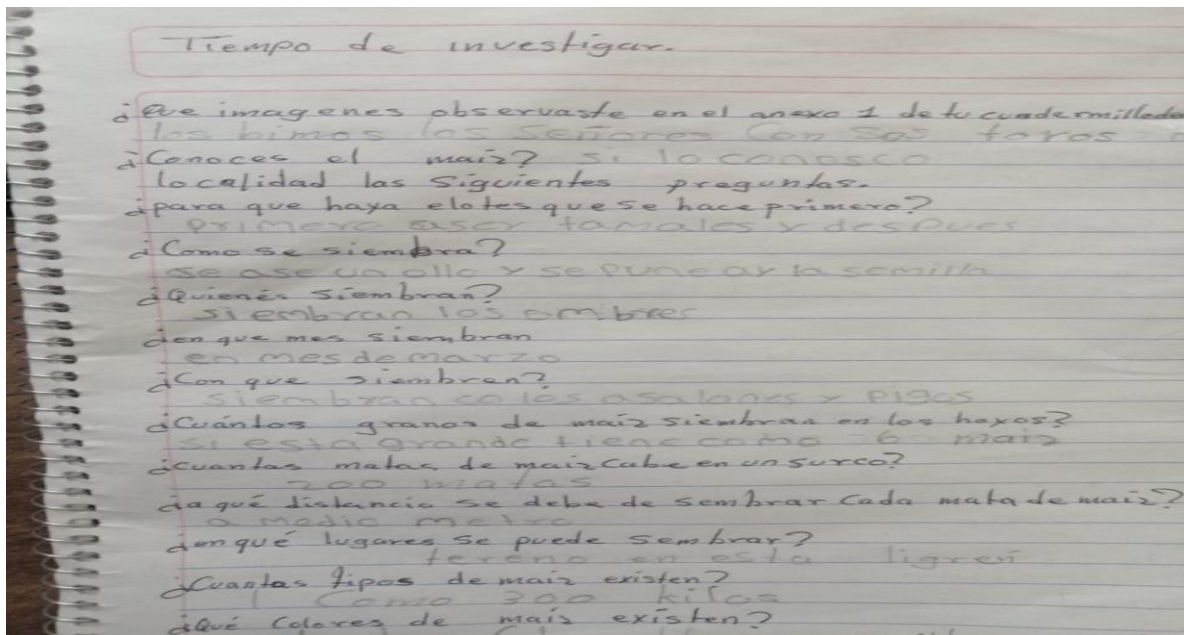 Tiempo de investigar.
¿Que imagenes observaste en el anexo 1 de tu cuadernillo de
los bimos los señores con sos toros
¿Conoces el maíz? si lo conosco
localidad las siguientes preguntas.
¿para que haya elotes que se hace primero?
primero aser tamales y despues
¿Como se siembra?
se ase un ollo y se pune ay la semilla
¿Quienés siembran?
siembran los ombres
¿en que mes siembran
en mes de marzo
¿Con que siembran?
siembran co los asalones y picos
¿Cuántos granos de maíz siembran en los hoyos?
si esta grande tiene como 6 maiz
¿cuantas matas de maiz cabe en un surco?
200 matas
¿a qué distancia se debe de sembrar cada mata de maiz?
a medio metro
¿en qué lugares se puede sembrar?
tereno en esta
¿Cuantas tipos de maiz existen?
Como 300 kilos
¿Qué Colores de maiz existen?